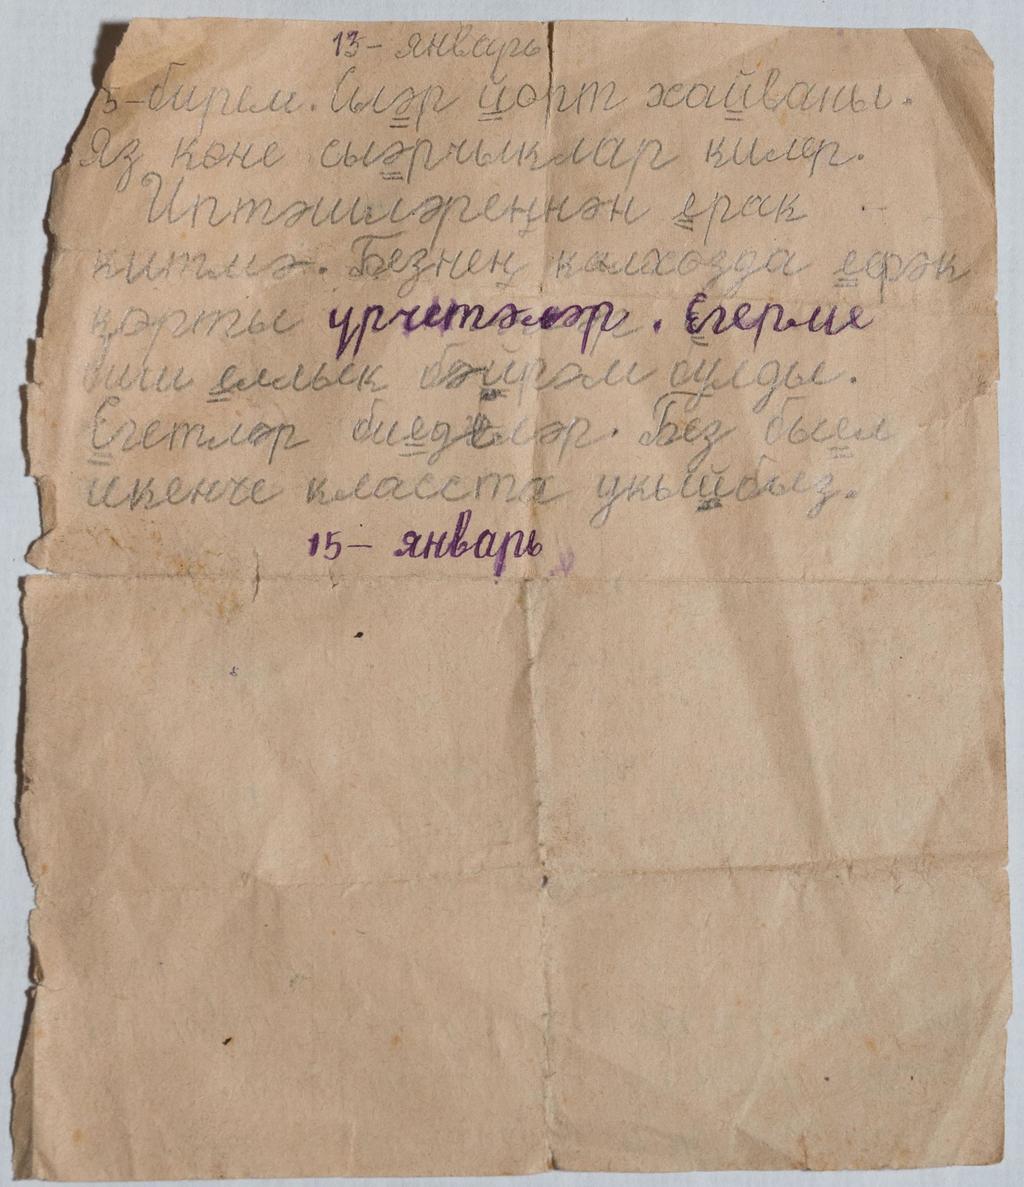 13- январь
5-бирем. Сыәр йорт хайваны.
Яз көне сыәрчыклар килер.
Иптәшләреңнән ерак
китмә. Безнең калхозда ефәк
қорты үрчетәләр. Егерме
биш еллык бәйрәм булды.
Егетләр биеделәр. Без быел
икенче класста укыйбыз.
15- январь